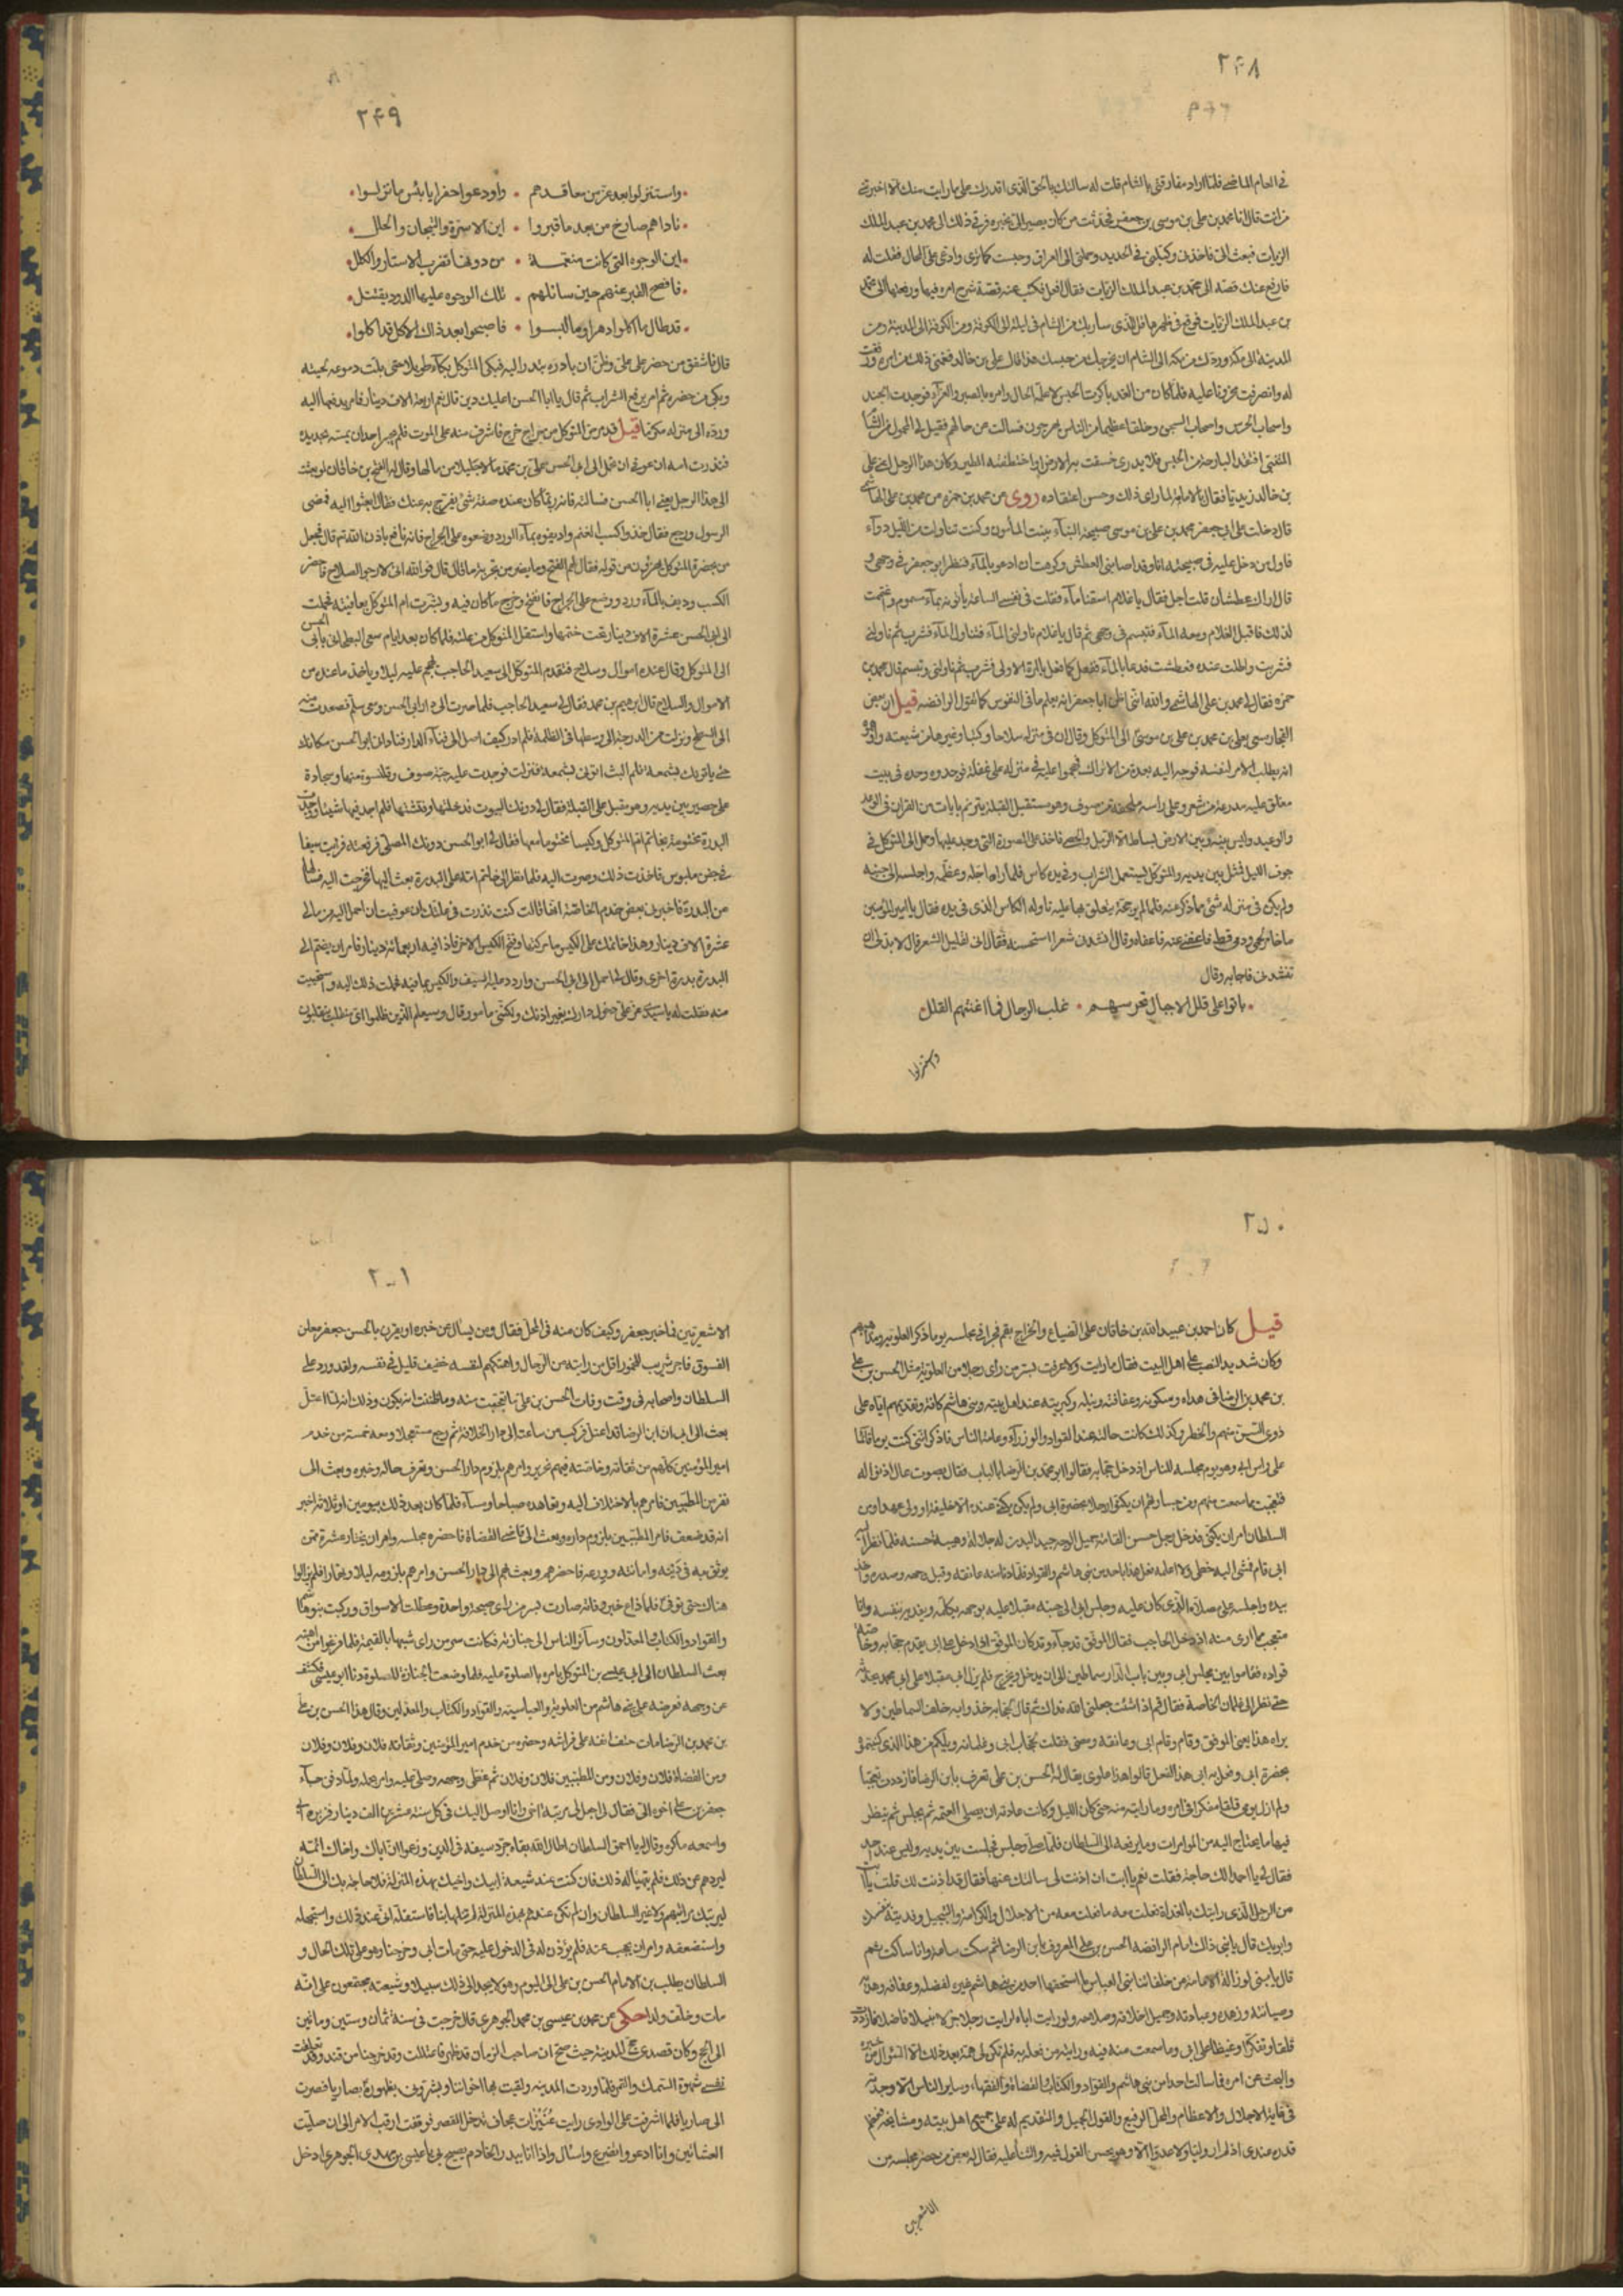 ٢۴٨
في العام الماضي فلما اراد مفارقتي بالشام قلت له سالتك بالحق الذي اقدرك على ما رايت منك الا اخبرتني
من انت قال انا محمد بن علي بن موسى بن جعفر فحدثت من كان يصير الي بخبره فرقي ذلك الى محمد بن عبد الملك
الزيات فبعث الي فاخذني وكبلني في الحديد وحملني الى العراق وحبست كما ترى وادعي علي المحال فقلت له
فارفع عنك قصة الى محمد بن عبد الملك الزيات فقال افعل فكتبت عنه قصة شرح امره فيها ورفعها الى محمد
بن عبد الملك الزيات فوقع في ظهرها قل للذي ساربك من الشام في ليلة الى الكوفة ومن الكوفة الى المدينة ومن
المدينة الى مكة وردك من مكة الى الشام ان يخرجك من حبسك هذا قال علي بن خالد فغمني ذلك من امره ورققت
له وانصرفت محزونا عليه فلما كان من الغد باكرت الحبس لاعلمه الحال وامره بالصبر والعزاء فوجدت الجند
واصحاب الحرس واصحاب السجن وخلقا عظيما من الناس يهرعون فسالت عن حالهم فقيل لي المحمول من الشام
المتنبي افتقد البارحة من الحبس فلا يدرى خسفت به الارض او اختطفته الطير وكان هذا الرجل اعني علي
بن خالد زيديا فقال بالامامة لما راى ذلك وحسن اعتقاده روى عن محمد بن حمزه عن محمد بن علي الهاشمي
قال دخلت على ابي جعفر محمد بن علي بن موسى صبيحة البناء ببنت المأمون وكنت تناولت من الليل دوآء
فاول من دخل عليه في صبيحته انا وقد اصابني العطش وكرهت ان ادعو بالمآء فنظر ابو جعفر في وجهي و
قال اراك عطشان قلت اجل فقال يا غلام اسقنا مآء فقلت في نفسي الساعة ياتونه بمآء مسموم واغتممت
لذلك فاقبل الغلام ومعه المآء فتبسم في وجهي ثم قال يا غلام ناولني المآء فتناول المآء فشرب ثم ناولني
فشربت واطلت عنده فعطشت فدعا بالمآء ففعل كما فعل بالمرة الاولى فشرب ثم ناولني وتبسم قال محمد بن
حمزه فقال لي محمد بن علي الهاشمي والله انني اظن ابا جعفر انه يعلم ما في النفوس كما تقول الرافضه قيل ان بعض
التجار سعى بعلي بن محمد بن علي بن موسى الى المتوكل وقال ان في منزله سلاحا وكتبا وغيرها من شيعته واوهموه
انه يطلب الامر لنفسه فوجه اليه بعدة من الاتراك فهجموا عليه في منزله على غفلة فوجدوه وحده في بيت
مغلق عليه مدرعة من شعر وعلى راسه ملحفة من صوف وهو مستقبل القبلة يترنم بايات من القران في الوعد
والوعيد وليس بينه وبين الارض بساط الا الرمل والحصى فاخذ على الصورة التي وجد عليها وحمل الى المتوكل في
جوف الليل فمثل بين يديه والمتوكل يستعمل الشراب وفي يده كاس فلما راه اجله وعظمه واجلسه الى جنبه
ولم يكن في منزله شئ مما ذكر عنه فلما لم يوجد يتعلق بها عليه ناوله الكاس الذي في يده فقال يا امير المؤمنين
ما خامر لحمي ودمي قط فاعفني عنه فاعفاه وقال انشدني شعرا استحسنه فقال اني لقليل الشعر قال لا بد لي ان
تنشدني فاجابه وقال
باتوا على قلل الاجبال تحرسهم • غلب الرجال فما اغنتهم القلل
واستنزلوا
٢۴٩
• واستنزلوا بعد عز من معاقدهم • واودعوا حفرا يا بئس ما نزلوا •
• ناداهم صارخ من بعد ما قبروا • اين الاسرة والتيجان والحلل •
• اين الوجوه التي كانت منعمة • من دونها تضرب الاستار والكلل •
• فافصح القبر عنهم حين سائلهم • تلك الوجوه عليها الدود يقتتل •
• قد طال ما اكلوا دهرا وما لبسوا • فاصبحوا بعد ذاك الاكل قد اكلوا •
قال فاشفق من حضر على علي وظن ان بادره تبدر اليه فبكى المتوكل بكآء طويلا حتى بلت دموعه لحيته
وبكى من حضره ثم امر برفع الشراب ثم قال يا ابا الحسن اعليك دين قال نعم اربعة الاف دينار فامر بدفعها اليه
ورده الى منزله مكرما قيل قد مرض المتوكل من خراج خرج فاشرف منه على الموت فلم يجسر احد ان يمسه بحديدة
فنذرت امه ان عوفي ان تحمل الى ابي الحسن علي بن محمد مالا جليلا من مالها وقال له الفتح بن خاقان لو بعثت
الى هذا الرجل يعني ابا الحسن فسالته فانه ربما كان عنده صفة شئ يفرج به عنك فقال ابعثوا اليه فمضى
الرسول ورجع فقال خذوا كسب الغنم وادیفوه بمآء الورد وضعوه على الخراج فانه نافع باذن الله تم قال فجعل
من بحضرة المتوكل يهزؤن من قوله فقال لهم الفتح وما يضر من تجربة ما قال قال فوالله اني لارجو الصلاح فاحضر
الكسب وديف بالمآء ورد ووضع على الخراج فانفتح وخرج ما كان فيه وبشرت ام المتوكل بعافيته فحملت
الى ابي الحسن عشرة الاف دينار تحت ختمها واستقل المتوكل من علته فلما كان بعد ايام سعى البطحاني بابي الحسن
الى المتوكل وقال عنده اموال وسلاح فتقدم المتوكل الى سعيد الحاجب ان يهجم عليه ليلا وياخذ ما عنده من
الاموال والسلاح قال ابرهيم بن محمد فقال لي سعيد الحاجب فلما صرت الى دار ابي الحسن ومعي سلم فصعدت منه
الى السطح ونزلت من الدرجة الى وسطها في الظلمة فلم ادر كيف اصل الى فنآء الدار فناداني ابو الحسن مكانك
حتى ياتونك بشمعة فلم البث اتوني بشمعة فنزلت فوجدت عليه جبة صوف وقلنسوة منها وسجادة
على حصير بين يديه وهو مقبل على القبلة فقال لي دونك البيوت فدخلتها وفتشتها فلم اجد فيها شيئا ووجدت
البدرة مختومة بخاتم ام المتوكل وكيسا مختوما معها فقال لي ابو الحسن دونك المصلى فرفعته فرايت سيفا
في جفن ملبوس فاخذت ذلك وصرت اليه فلما نظر الى خاتم امه على البدرة بعث اليها فخرجت اليه فسالها
عن البدرة فاخبرني بعض خدم الخاصة انها قالت كنت نذرت في علتك ان عوفيت ان احمل اليه من مالي
عشرة الاف دينار وهذا خاتمك على الكيس ما حركها وفتح الكيس الاخر فاذا فيه اربعمائة دينار فامر ان يضم الى
البدرة بدرة اخرى وقال لي احمل الى ابي الحسن واردد عليه السيف والكيس بما فيه فحملت ذلك اليه واستحييت
منه فقلت له يا سيدي عز علي دخول دارك بغير اذنك ولكني مامور قال وسيعلم الذين ظلموا اي منقلب ينقلبون
٢۵٠
قيل كان احمد بن عبيد الله بن خاقان على الضياع والخراج بقم فجرى في مجلسه يوما ذكر العلوية ومذاهبهم
وكان شديد النصب على اهل البيت فقال ما رايت ولا عرفت بسر من راى رجلا من العلوية مثل الحسن بن علي
بن محمد بن الرضا في هداه وسكونه وعفافته ونبله وكبريته عند اهل بيته وبني هاشم كافة وتقديمهم اياه على
ذوي السن منهم والخطر وكذلك كانت حالته عند القواد والوزرآء وعامة الناس فاذكر انني كنت يوما قائما
على راس ابي وهو يوم مجلسه للناس اذ دخل حجابه فقالوا ابو محمد بن الرضا بالباب فقال بصوت عال اذنوا له
فتعجبت مما سمعت منهم ومن جسارتهم ان يكنوا رجلا بحضرة ابي ولم يكن يكنى عنده الا خليفة او ولي عهد او من
السلطان امر ان يكنى فدخل رجل حسن القامة جميل الوجه جيد البدن له جلالة وهيبة حسنه فلما نظر اليه
ابي قام فمشى اليه خطى ولا اعلمه فعل هذا باحد من بني هاشم والقواد فلما دنا منه عانقه وقبل وجهه وصدره واخذ
بيده واجلسه على مصلاه الذي كان عليه وجلس ابي الى جنبه مقبلا عليه بوجهه يكلمه ويفديه بنفسه وانا
متعجب مما ارى منه اذ دخل الحاجب فقال الموفق قد جآء وقد كان الموفق اذا دخل على ابي يقدم حجابه وخاصة
قواده فقاموا بين مجلس ابي وبين باب الدار سماطين الى ان يدخل ويخرج فلم يزل ابي مقبلا على ابي محمد يحدثه
حتى نظر الى غلمان الخاصة فقال قم اذا شئت جعلني الله فداك ثم قال لحجابه خذوا به خلف السماطين ولا
يراه هذا يعني الموفق وقام وقام ابي وعانقه ومضى فقلت لحجاب ابي وغلمانه ويلكم من هذا الذي كنيتموه
بحضرة ابي وفعل به ابي هذا الفعل قالوا هذا علوي يقال له الحسن بن علي تعرف بابن الرضا فازددت تعجبا
ولم ازل يومي قلقا متفكرا في امره وما رايته منه حتى كان الليل وكانت عادته ان يصلي العتمه ثم يجلس ثم ينظر
فيما يحتاج اليه من المؤامرات وما يرفعه الى السلطان فلما صلى وجلس فجلست بين يديه وليس عنده احد
فقال لي يا احمد الك حاجة فقلت نعم يا ابت ان اذنت لي سالتك عنها فقال قد اذنت لك قلت يا ابت
من الرجل الذي رايتك بالغداة فعلت معه ما فعلت من الاجلال والكرامة والتبجيل وفديته بنفسك
وابويك قال يا بني ذلك امام الرافضه الحسن بن علي المعروف بابن الرضا ثم سكت ساعة وانا ساكت ثم
قال يا بني لو زالت الامامة من خلفائنا بني العباس ما استحقها احد من بني هاشم غيره لفضله وعفافه وهديه
وصيانته وزهده وعبادته وجميل اخلاقه وصلاحه ولو رايت اباه لرايت رجلا جزلا نبيلا فاضلا فازددت
قلقا وتفكرا وغيظا على ابي وما سمعت منه فيه ورايته من فعله به فلم تكن لي همة بعد ذلك الا السؤال عن خبره
والبحث عن امره فما سالت احدا من بني هاشم والقواد والكتاب والقضاة والفقهاء وساير الناس الا وجدته
في غاية الاجلال والاعظام والمحل الرفيع والقول الجميل والتقديم له على جميع اهل بيته ومشايخه فعظم
قدره عندي اذ لم ار وليا ولا عدوا الا وهو يحسن القول فيه والثنآ عليه فقال له بعض من حضر مجلسه من
الاشعريين
٢۵١
الاشعريين فما خبر جعفر وكيف كان منه في المحل فقال ومن يسال عن خبره او يقرن بالحسن جعفر معلن
الفسوق فاجر شريب للخمور اقل من رايته من الرجال واهتكهم لنفسه خفيف قليل في نفسه ولقد ورد على
السلطان واصحابه في وقت وفات الحسن بن علي ما تعجبت منه وما ظننت انه يكون وذلك انه لما اعتل
بعث الى ابي ان ابن الرضا قد اعتل فركب من ساعته الى دار الخلافة ثم رجع مستعجلا ومعه خمسة من خدم
امير المؤمنين كلهم من ثقاته وخاصته فيهم نحرير وامرهم بلزوم دار الحسن وتعرف حاله وخبره وبعث الى
نفر من المطببين فامرهم بالاختلاف اليه وتعاهده صباحا ومسآء فلما كان بعد ذلك بيومين او ثلاثة اخبر
انه قد ضعف فامر المطببين بلزوم داره وبعث الى قاضي القضاة فاحضره مجلسه وامر ان يختار عشرة ممن
يوثق به في دينه وامانته وورعه فاحضرهم وبعث بهم الى دار الحسن وامرهم بلزومه ليلا ونهارا فلم يزالوا
هناك حتى توفي فلما ذاع خبر وفاته صارت سر من راى صيحة واحدة وعطلت الاسواق وركبت بنو هاشم
والقواد والكتاب والمعدلون وسائر الناس الى جنازته فكانت سر من راى شبيها بالقيمة فلما فرغوا من تجهيزه
بعث السلطان الى ابي عيسى بن المتوكل يامره بالصلوة عليه فلما وضعت الجنازة للصلوة دنا ابو عيسى فكشف
عن وجهه فعرضه على بني هاشم من العلوية والعباسية والقواد والكتاب والمعدلين وقال هذا الحسن بن علي
بن محمد بن الرضا مات حتف انفه على فراشه وحضره من خدم امير المؤمنين وثقاته فلان وفلان وفلان
ومن القضاة فلان وفلان ومن المطببين فلان وفلان ثم غطى وجهه وصلى عليه وامر بحمله ولما دفن جآء
جعفر بن علي اخوه الى ابي فقال له اجعل لي مرتبة اخي وانا اوصل اليك في كل سنة عشرين الف دينار فزبره ابي
واسمعه ما كره وقال له يا احمق السلطان اطال الله بقاءه جرد سيفه في الذين زعموا ان اباك واخاك ائمة
ليردهم عن ذلك فلم يتهيا له ذلك فان كنت عند شيعة ابيك واخيك بهذه المنزلة فلا حاجة بك الى السلطان
ليرتبك مراتبهم ولا غير السلطان وان لم تكن عندهم بهذه المنزلة لم تنلها بنا فاستقله ابي عند ذلك واستجهله
واستضعفه وامر ان يحجب عنه فلم يؤذن له في الدخول عليه حتى مات ابي وخرجنا وهو على تلك الحال و
السلطان يطلب بن الامام الحسن بن علي الى اليوم وهو لا يجد الى ذلك سبيلا وشيعته مجتمعون على انه
مات وخلف ولدا حكى عن محمد بن عيسى بن محمد الجوهري قال خرجت في سنة ثمان وستين ومأتين
الى الحج وكان قصدي المدينة حيث صح ان صاحب الزمان قد ظهر فاعتللت وقد خرجنا من قند وتعلقت
نفسي شهوة السمك والتمر فلما وردت المدينه ولقيت بها اخواننا وبشروني بظهوره بصاريا فصرت
الى صاريا فلما اشرفت على الوادي رايت عنيزات عجافا تدخل القصر فوقفت ارقب الامر الى ان صليت
العشائين وانا ادعو واتضرع واسئال واذا انا ببدر الخادم يصيح بي يا عيسى بن مهدي الجوهري ادخل